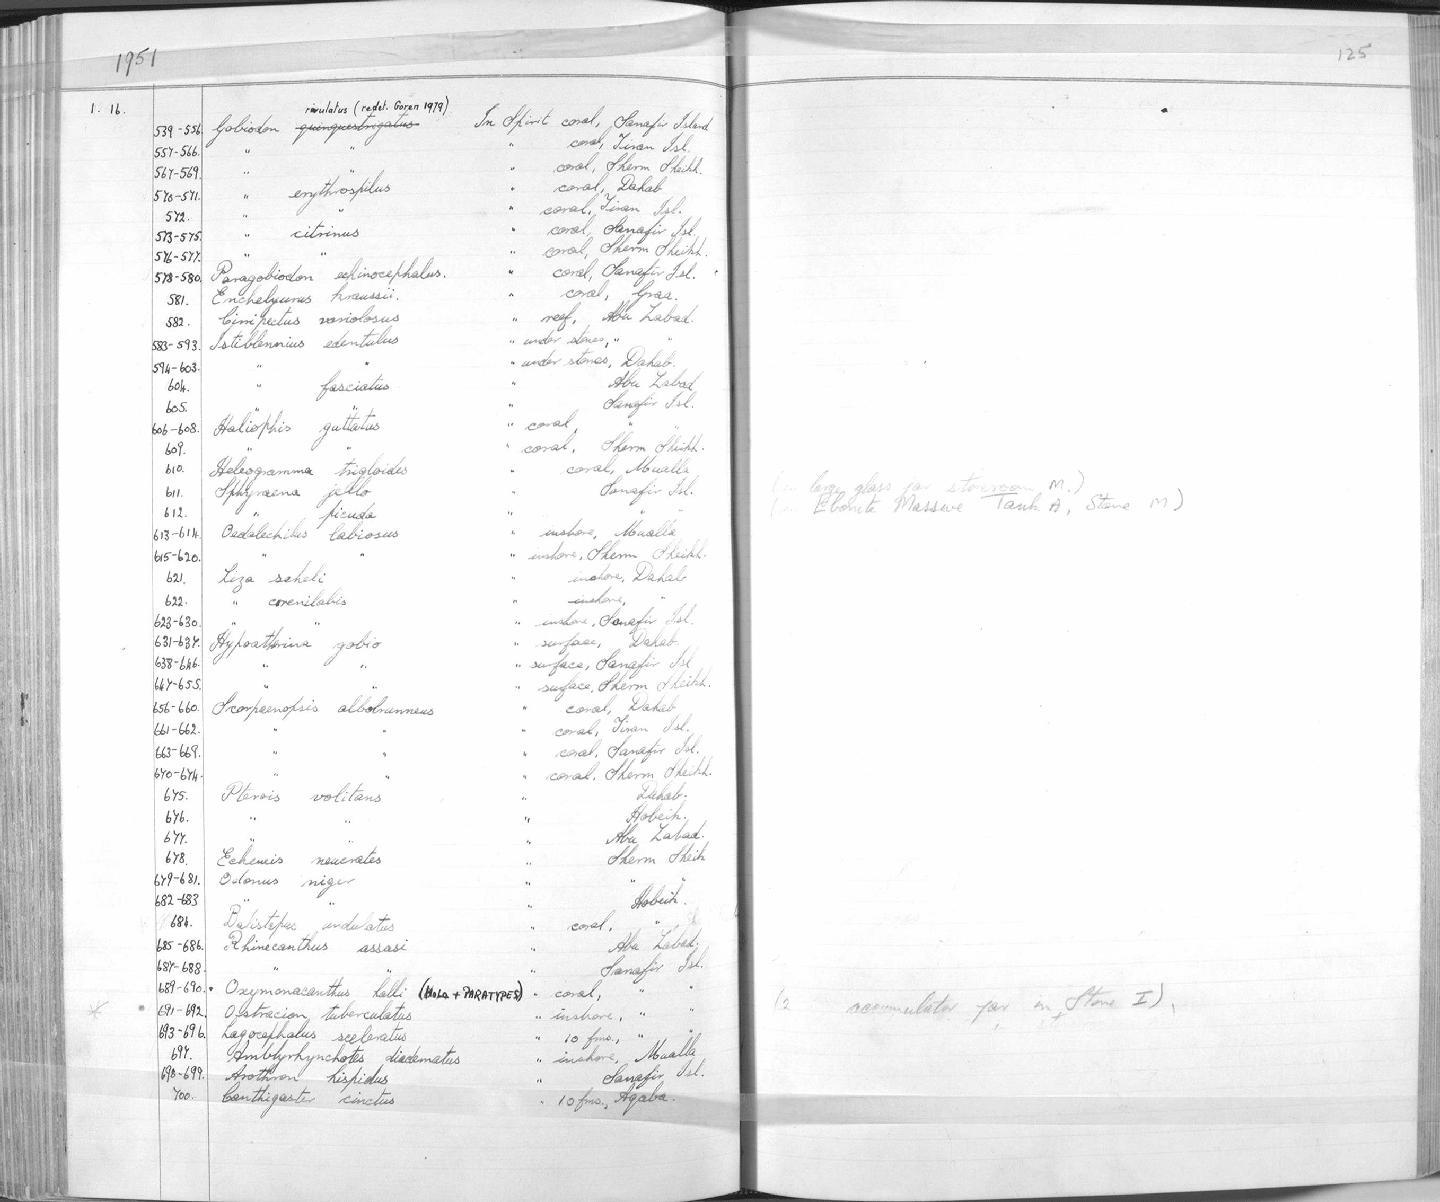 1951
125
1. 16.
rivulatus (redet. Goren 1979)
539-556. Gobiodon quinquestrigatus In Spirit coral, Sanafir Island
557-566. " " " coral, Tiran Isl.
567-569. " " " coral, Sherm Sheikh.
570-571. " erythrospilus " coral, Dahab
572. " " " coral, Tiran Isl.
573-575. " citrinus " coral, Sanafir Isl.
576-577. " " " coral, Sherm Sheikh.
578-580. Paragobiodon echinocephalus. " coral, Sanafir Isl.
581. Enchelyurus kraussii. " coral, Graa.
582. Cirripectus variolosus " reef, Abu Zabad.
583-593. Istiblennius edentulus " under stones, " "
594-603. " " " under stones, Dahab.
604. " fasciatus " Abu Zabad
605. " " " Sanafir Isl.
606-608. Haliophis guttatus " coral, " "
609. " " " coral, Sherm Sheikh.
610. Helcogramma trigloides " coral, Mualla
611. Sphyraena jello " Sanafir Isl. (in large glass jar storeroom M.)
612. " picuda " " (in Ebonite Massive Tank A, Store M)
613-614. Oedalechilus labiosus " inshore, Mualla
615-620. " " " inshore, Sherm Sheikh.
621. Liza seheli " inshore, Dahab
622. " crenilabis " inshore, "
623-630. " " " inshore, Sanafir Isl.
631-637. Hypoatherina gobio " surface, Dahab.
638-646. " " " surface, Sanafir Isl
647-655. " " " surface, Sherm Sheikh.
656-660. Scorpaenopsis albobrunneus " coral, Dahab
661-662. " " " coral, Tiran Isl.
663-669. " " " coral, Sanafir Isl.
670-674. " " " coral, Sherm Sheikh.
675. Pterois volitans " Dahab.
676. " " " Hobeik.
677. " " " Abu Zabad.
678. Echeneis neucrates " Sherm Sheik
679-681. Odonus niger " " "
682-683 " " " Hobeik.
684. Balistapus undulatus " coral, "
685-686. Rhinecanthus assasi " Abu Zabad.
687-688. " " " Sanafir Isl.
689-690. Oxymonacanthus halli (HOLO + PARATYPES) " coral, " "
691-692. Ostracion tuberculatus " inshore, " " (2 accumulator jar in Store I).
693-696. Lagocephalus sceleratus " 10 fms., " "
697. Amblyrhynchotes diadematus " inshore, Mualla
698-699. Arothron hispidus " Sanafir Isl.
700. Canthigaster cinctus " 10 fms., Aqaba.